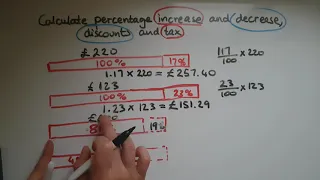 Calculate percentage increase and decrease,
discounts and tax
£220
100% 17%
1.17 × 220 = £257.40
117/100 × 220
£123
100% 23%
1.23 × 123 = £151.29
23/100 × 123